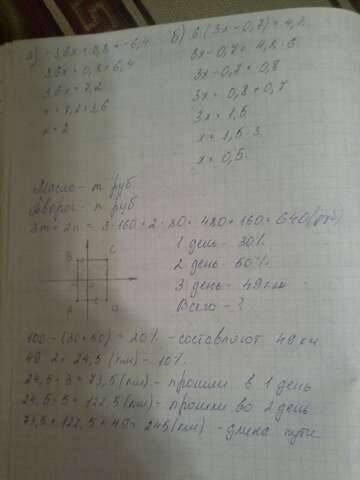 а) -3,6x + 0,8 = -6,4
3,6x = 0,8 + 6,4
3,6x = 7,2
x = 7,2 : 3,6
x = 2
б) 6·(3x - 0,7) = 4,8
3x - 0,7 = 4,8 : 6
3x - 0,7 = 0,8
3x = 0,8 + 0,7
3x = 1,5
x = 1,5 : 3
x = 0,5
Масло - m руб
Творог - n руб
3m + 2n = 3·160 + 2·80 = 480 + 160 = 640 (руб)
B C
A D
1 день - 30%
2 день - 50%
3 день - 49 км
Всего - ?
100 - (30+50) = 20% - составляют 49 км
49 : 2 = 24,5 (км) - 10%
24,5 · 3 = 73,5 (км) - прошли в 1 день
24,5 · 5 = 122,5 (км) - прошли во 2 день
73,5 + 122,5 + 49 = 245 (км) - длина пути